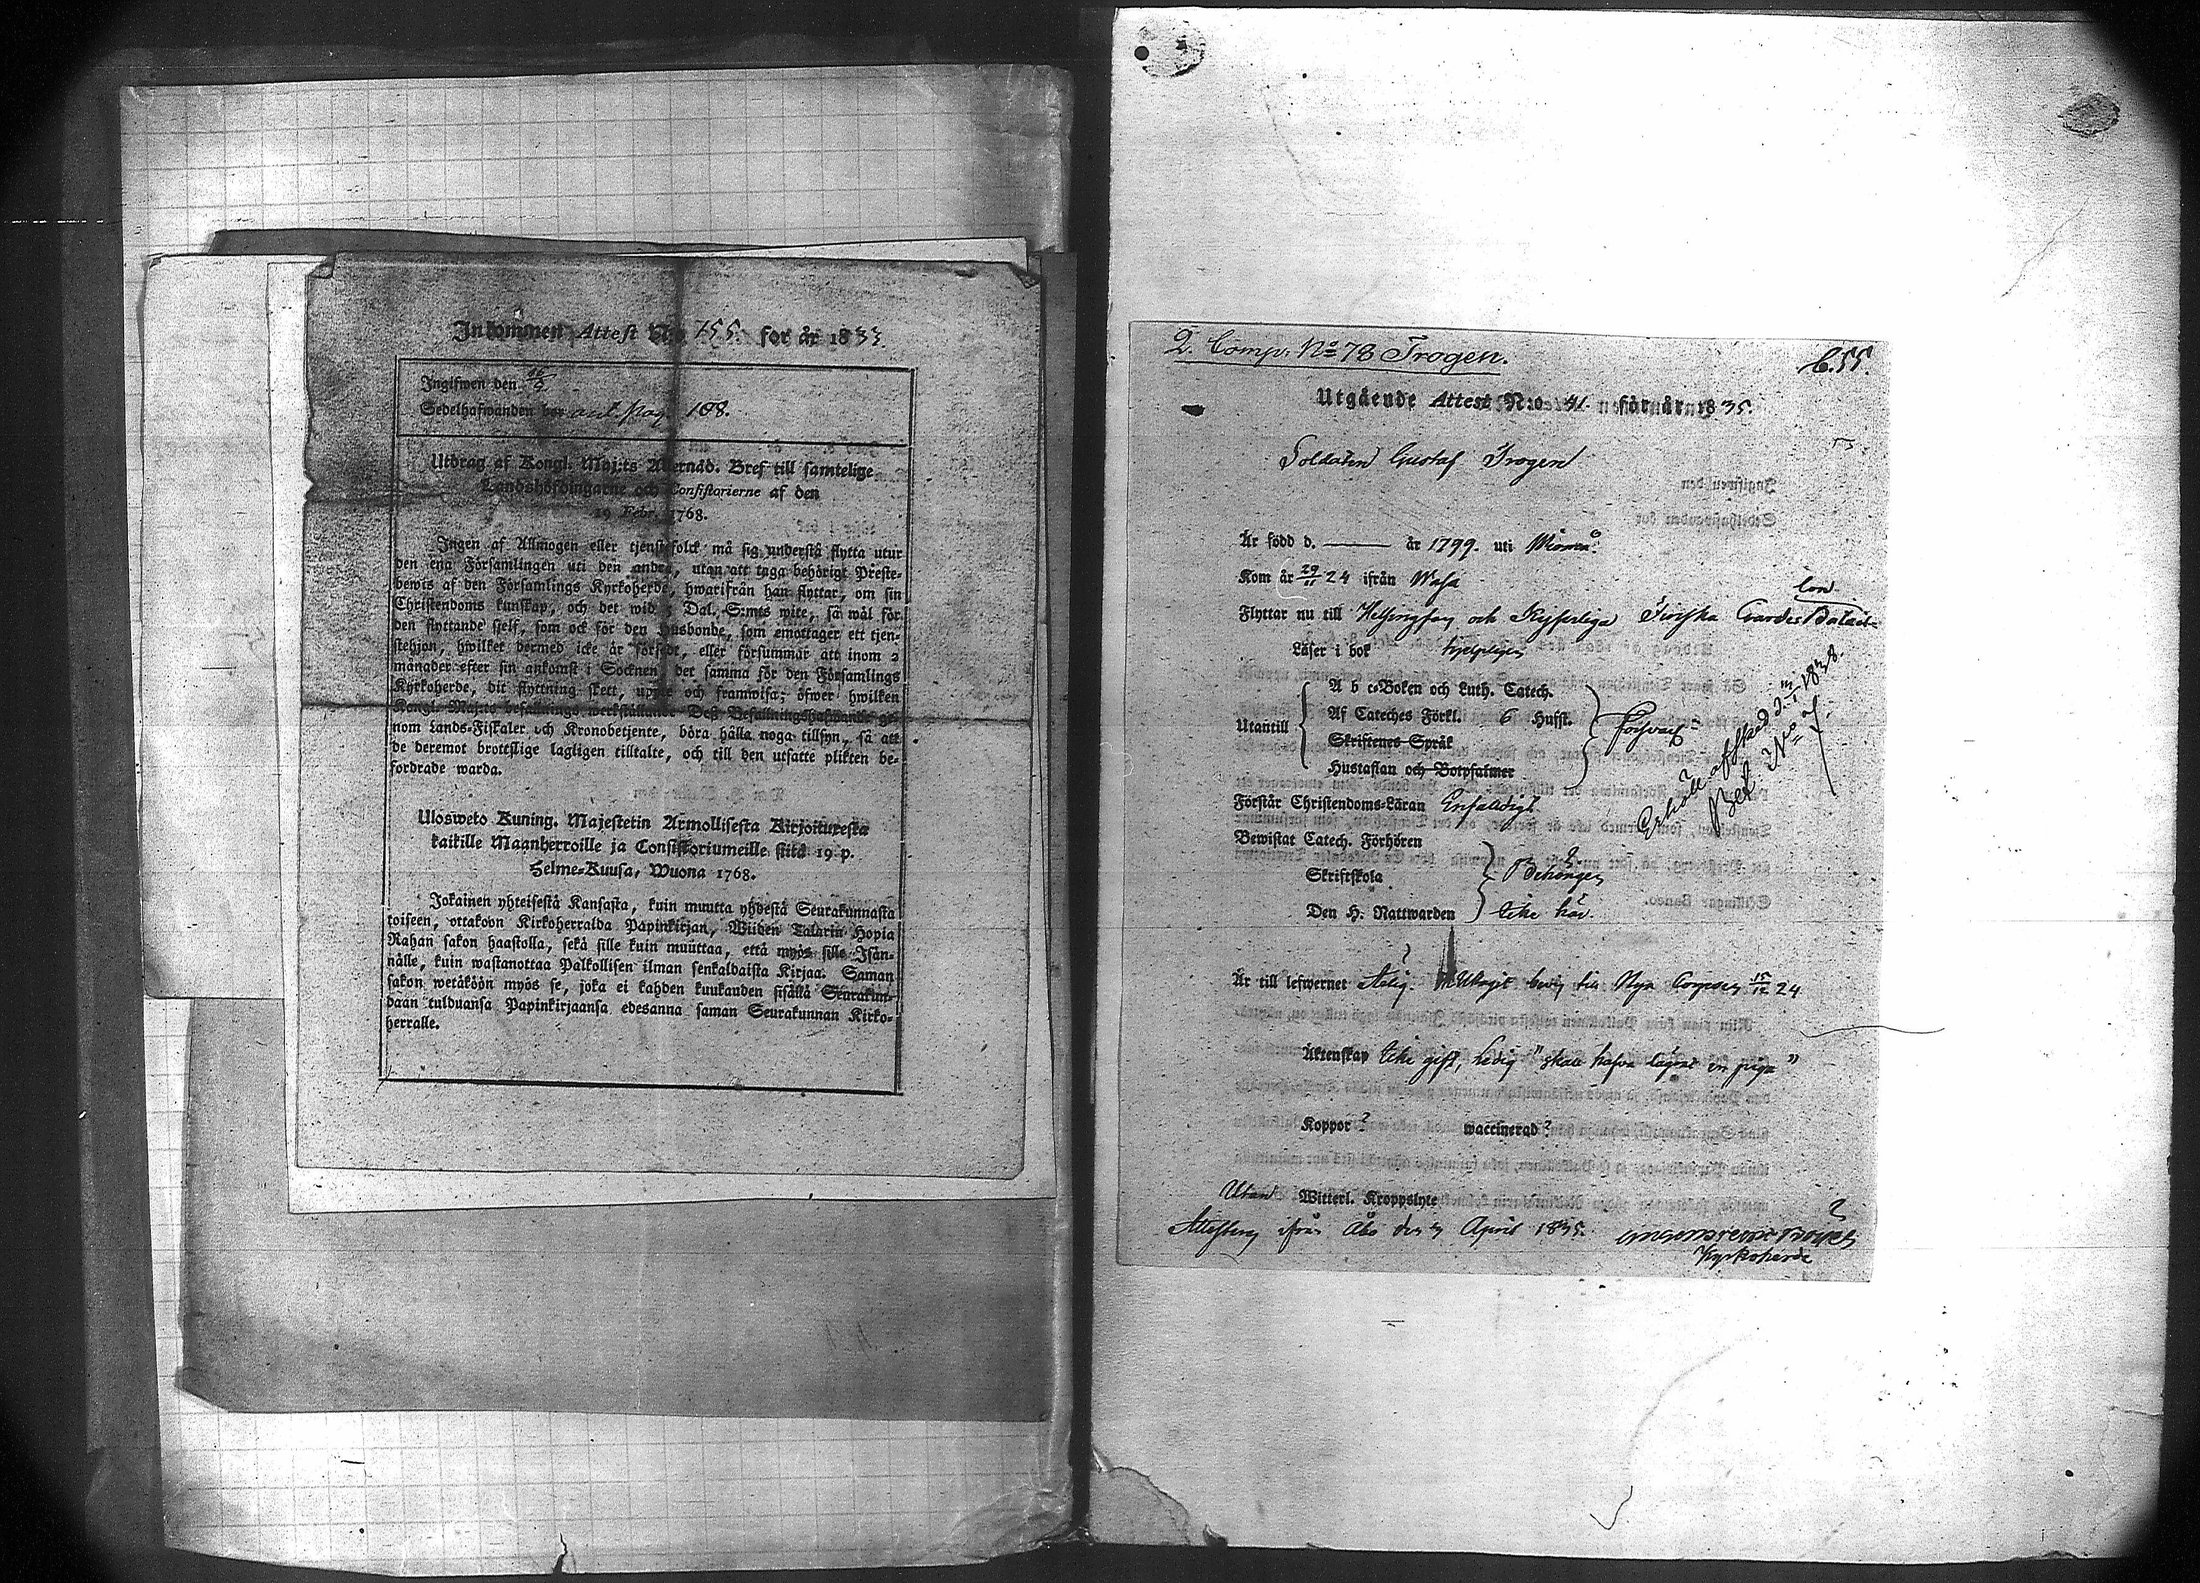 Inkommen Attest N:o 155. för år 1833.
Ingifwen den 16/9
Sedelhafwanden bor ant. pag. 108.
Utdrag af Kongl. Maj:ts Allernåd. Bref till samtelige
Landshöfdingarne och Consistorierne af den
19 Febr. 1768.
Ingen af Allmogen eller tjenstefolck må sig understå flytta utur
den ena Församlingen uti den andra, utan att taga behörigt Preste-
bewis af den Församlings Kyrkoherde, hwarifrån han flyttar, om sin
Christendoms kunskap, och det wid 5 Dal. S:mts wite, så wäl för
den flyttande sjelf, som ock för den Husbonde, som emottager ett tjen-
stehjon, hwilket dermed icke är försedt, eller försummar att inom 2
månader efter sin ankomst i Socknen, det samma för den Församlings
Kyrkoherde, dit flyttning skett, uppte och framwisa; öfwer hwilken
Kongl. Maj:ts befallnings werkställande Dess Befallningshafwande ge-
nom Lands-Fiskaler och Kronobetjente, böra hålla noga tillsyn, så att
de deremot brottslige lagligen tilltalte, och till den utsatte plikten be-
fordrade warda.
Ulosweto Kuning. Majestetin Armollisesta Kirjoituresta
kaikille Maanherroille ja Consistoriumeille siitä 19 p.
Helme-Kuusa, Wuona 1768.
Jokainen yhteisestä Kansasta, kuin muutta yhdestä Seurakunnasta
toiseen, ottakoon Kirkoherralda Papinkirjan, Wiiden Talarin Hopia
Rahan sakon haastolla, sekä sille kuin muuttaa, että myös sille Isän-
nälle, kuin wastanottaa Palkollisen ilman senkaldaista Kirjaa. Saman
sakon wetäköön myös se, joka ei kahden kuukauden sisällä Seurakun-
daan tulduansa Papinkirjaansa edesanna saman Seurakunnan Kirko-
herralle.
2. Comp: No 78 Trogen.
C.55.
Utgående Attest N:o 41. för år 1835.
Soldaten Gustaf Trogen
Är född d. ——— år 1799. uti
Kom år 29/11 24 ifrån Wasa
Flyttar nu till Helsingfors och Kejserliga Finska Gardes Batail-
lon
Läser i bok hjelpligen
Utantill
A b c-Boken och Luth. Catech.
Af Cateches Förkl. 6 Hufst.
Skriftenes Språk
Hustaflan och Botpsalmer
Försvarl.
Erhöll afsked d. 1838.
Förstår Christendoms-Läran Enfaldigt
Bewistat Catech. Förhören
Skriftskola
Den H. Nattwarden
Behörigen
icke här
Är till lefwernet bevis till Nya 15/12 24
Äktenskap icke gift, ledig "skall hafva lägrat en piga"
Koppor? waccinerad?
Utan Witterl. Kroppslyte
Attesterar ifrån Åbo den April 1835.
Kyrkoherde